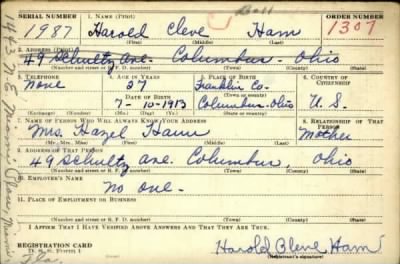 SERIAL NUMBER 1. NAME (Print) ORDER NUMBER
1987 Harold Cleve Ham 1307
(First) (Middle) (Last)
2. ADDRESS (Print)
49 Schultz Ave. Columbus Ohio
(Number and street or R. F. D. number) (Town) (County) (State)
3. TELEPHONE 4. AGE IN YEARS 5. PLACE OF BIRTH 6. COUNTRY OF CITIZENSHIP
None 27 Franklin Co.
DATE OF BIRTH
7-10-1913 Columbus-Ohio U. S.
(Exchange) (Number) (Mo.) (Day) (Yr.) (Town or county) (State or country)
7. NAME OF PERSON WHO WILL ALWAYS KNOW YOUR ADDRESS 8. RELATIONSHIP OF THAT PERSON
Mrs. Hazel Ham Mother
(Mr., Mrs., Miss) (First) (Middle) (Last)
9. ADDRESS OF THAT PERSON
49 Schultz Ave. Columbus, Ohio
(Number and street or R. F. D. number) (Town) (County) (State)
10. EMPLOYER'S NAME
No one.
11. PLACE OF EMPLOYMENT OR BUSINESS
(Number and street or R. F. D. number) (Town) (County) (State)
I AFFIRM THAT I HAVE VERIFIED ABOVE ANSWERS AND THAT THEY ARE TRUE.
REGISTRATION CARD
D. S. S. Form 1
Harold Cleve Ham
(Registrant's signature)
Miami
Fla.